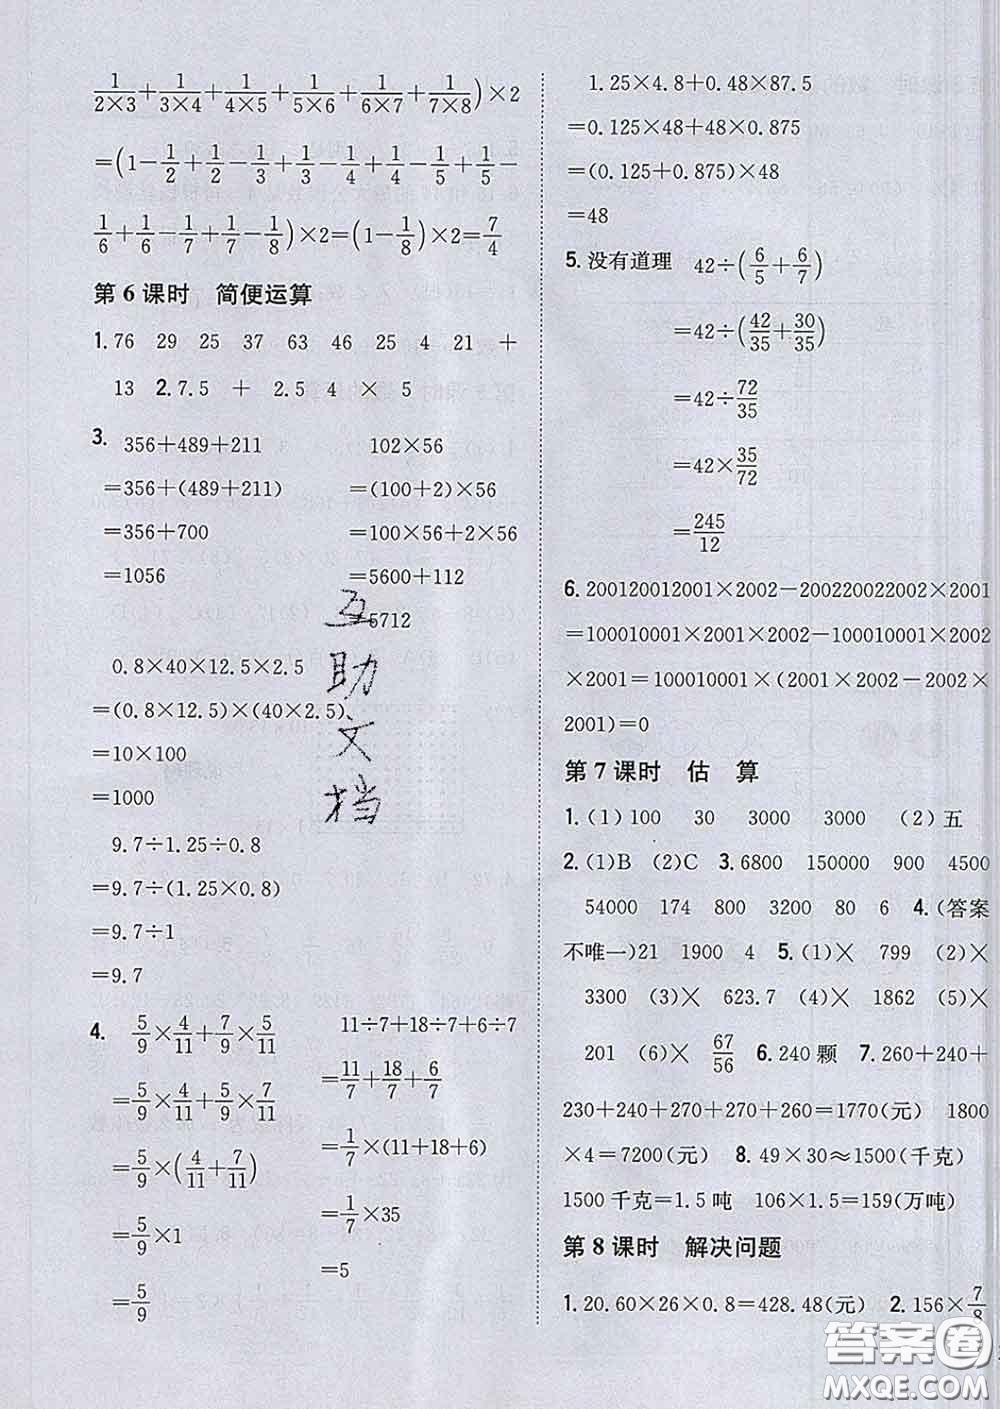 1/(2×3)+1/(3×4)+1/(4×5)+1/(5×6)+1/(6×7)+1/(7×8))×2
=(1-1/2+1/2-1/3+1/3-1/4+1/4-1/5+1/5-
1/6+1/6-1/7+1/7-1/8)×2=(1-1/8)×2=7/4
第6课时 简便运算
1.76 29 25 37 63 46 25 4 21 +
13 2.7.5 + 2.5 4 × 5
3. 356+489+211
=356+(489+211)
=356+700
=1056
102×56
=(100+2)×56
=100×56+2×56
=5600+112
=5712
0.8×40×12.5×2.5
=(0.8×12.5)×(40×2.5)
=10×100
=1000
9.7÷1.25÷0.8
=9.7÷(1.25×0.8)
=9.7÷1
=9.7
4. 5/9×4/11+7/9×5/11
=5/9×4/11+5/9×7/11
=5/9×(4/11+7/11)
=5/9×1
=5/9
11÷7+18÷7+6÷7
=11/7+18/7+6/7
=1/7×(11+18+6)
=1/7×35
=5
互
助
文
档
1.25×4.8+0.48×87.5
=0.125×48+48×0.875
=(0.125+0.875)×48
=48
5.没有道理 42÷(6/5+6/7)
=42÷(42/35+30/35)
=42÷72/35
=42×35/72
=245/12
6.200120012001×2002-200220022002×2001
=100010001×2001×2002-100010001×2002
×2001=100010001×(2001×2002-2002×
2001)=0
第7课时 估 算
1.(1)100 30 3000 3000 (2)五
2.(1)B (2)C 3.6800 150000 900 4500
54000 174 800 3200 80 6 4.(答案
不唯一)21 1900 4 5.(1)× 799 (2)×
3300 (3)× 623.7 (4)× 1862 (5)×
201 (6)× 67/56 6.240颗 7.260+240+
230+240+270+270+260=1770(元) 1800
×4=7200(元) 8.49×30≈1500(千克)
1500千克=1.5吨 106×1.5=159(万吨)
第8课时 解决问题
1.20.60×26×0.8=428.48(元) 2.156×7/8
答案圈
MXQE.COM